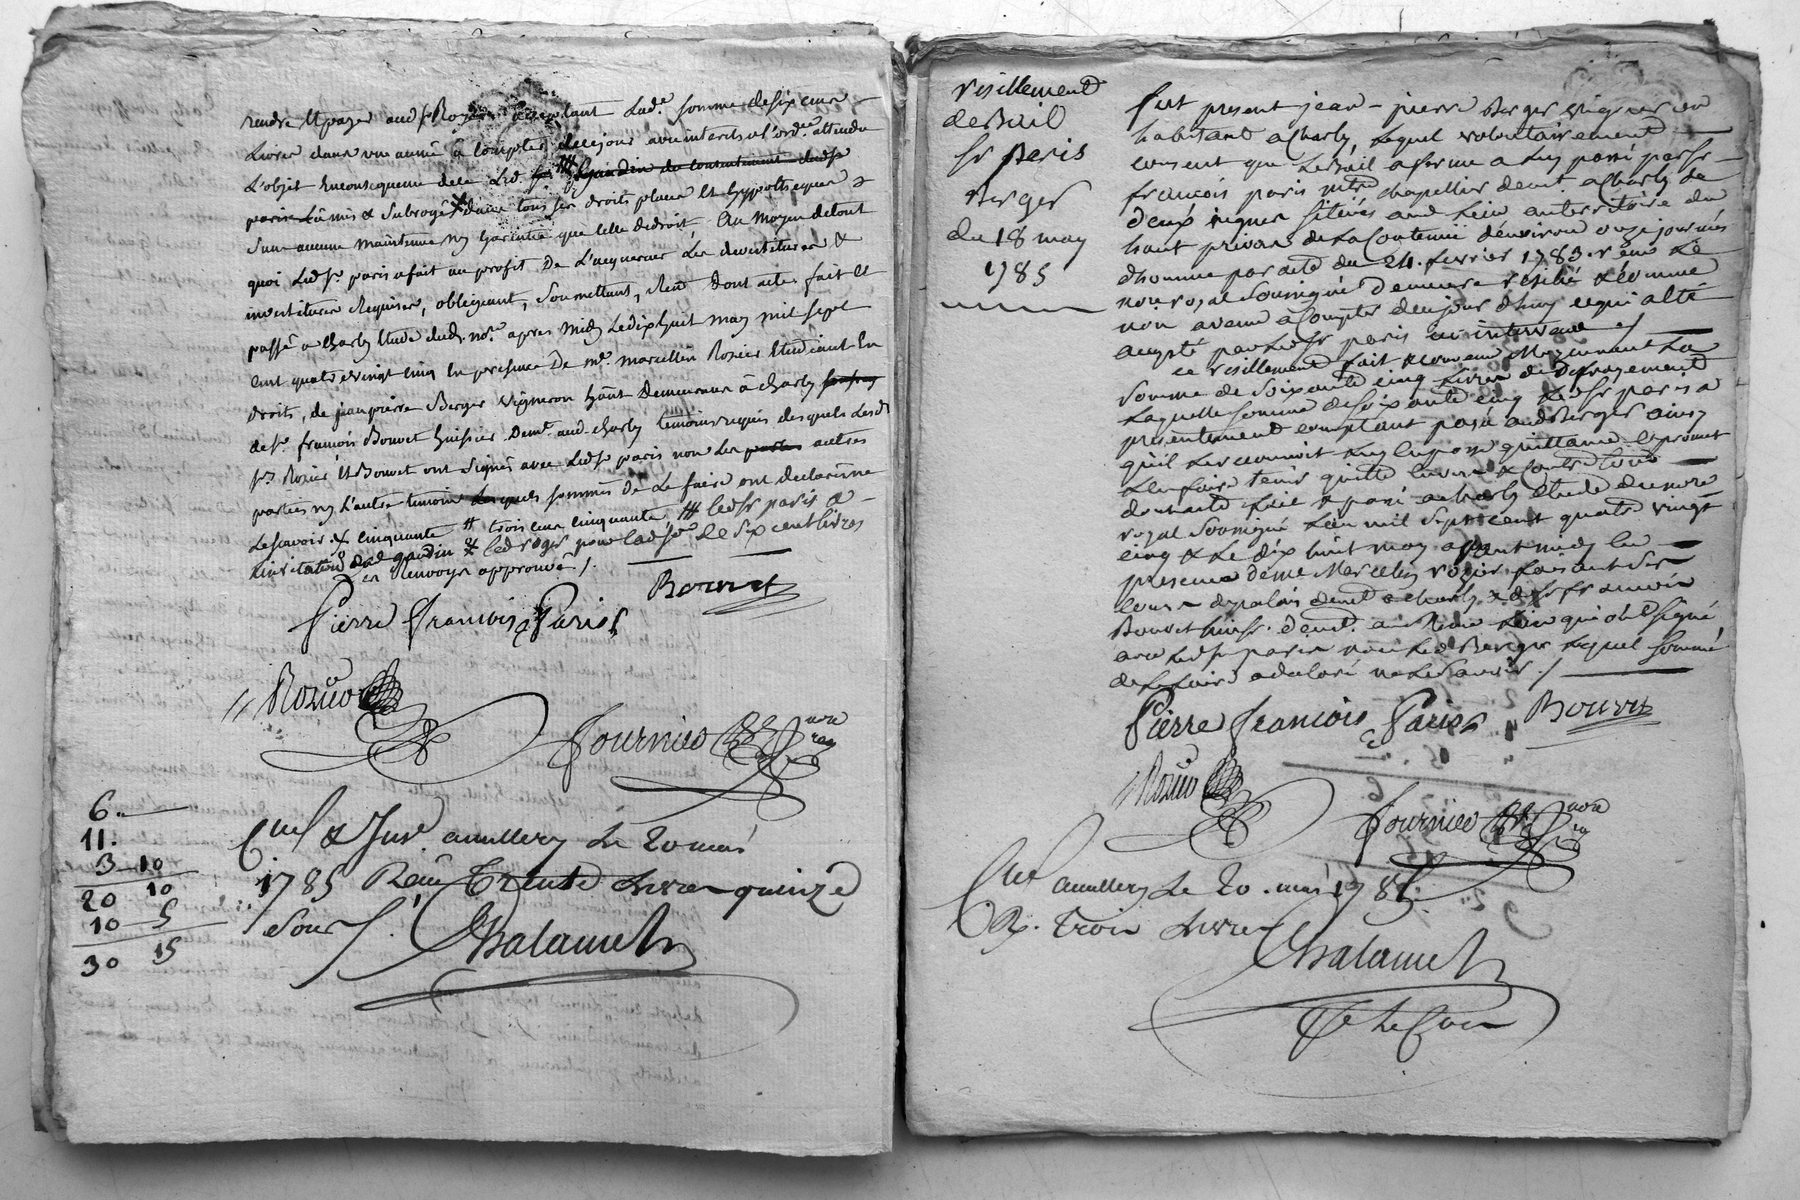 rendre et payer aud. Sr Rozier acceptant lad.e somme de six cent
livres dans une année à compter de ce jour avec intérêts à l'ord.re attendu
L'objet En consequence de ce Led
paris L'a mis & Subrogé dans tous ses droits place et hyppotheques &
Sans aucune maintenue ny Garentie que celle de droit. Au moyen de tout
quoi Led. Sr. paris a fait au profit De L'acquereur Les devestitures &
investitures Requises, obligeant, soumettant, Ren.t Dont acte. fait et
passé a Charly Etude dud. no.re apres Midy Le dix huit may mil sept
cent quatre vingt cinq En presence De m.e marcellin Rozier Etudiant En
droits, de jean pierre Berger Vigneron hab.t Demeurant à Charly
de Sr. francois Bouvet huissier Dem.t aud. Charly temoins requis desquels Lesd.
Srs Rozier et Bouvet ont signés avec Led. Sr paris non Les parties autres
parties ny L'autre temoin Lesquels sommés De Le faire ont declaré ne
Lescavoir & cinquante # trois cent cinquante ## led sr paris a
de six cent livres
en renvoys approuvé /.
Bouvet
Pierre François Paris
Rozier
Fournier no.re roy.
6..
11.
3 10
20 10
10 5
30 15
C.llé & Ins.é a millery Le 20 mai
1785 Reçu Trente Livres quinze
Sous /.
Chalamel
résillement
de Bail
Sr Paris
Berger
du 18 may
1785
fut présent jean-pierre Berger vigneron
habitant a Charly, Lequel volontairement
consent que Le Bail a ferme a Luy passé par Sr
francois paris m.tre Chapellier dem.t a Charly de
deux vignes situées aud. Lieu au territoire du
haut privas de La Contenue d'environ onze journés
d'homme par acte du 24. fevrier 1783. reçu Le
no.re royal Soussigné Demeure résilié & comme
non avenu a Compter de ce jour d'huy ce qui a été
accepté par Led. Sr paris ici intervenu /.
ce résillement fait & convenu Moyennant La
Somme de Soixante cinq Livres de Dedomagement
Laquelle Somme de Soixante cinq Led Sr paris a
présentement comptant payé aud Berger ainsy
qu'il Le reconnoit & en passe quittance & promet
L'en faire tenir quitte Envers & Contre tous
dont acte fait & passé a Charly étude du no.re
royal Soussigné L'an mil Sept cent quatre vingt
cinq & Le dix huit may avant midy En
presence de me Marcelin rozier faisant Son
Cours de palais dem.t a Charly & de Sr francois
Bouvet huiss.r dem.t au Meme Lieu qui ont signé
avec Led Sr paris non Led Berger Lequel Sommé
de le faire a declaré ne Le Savoir /.
Pierre François Paris
Bouvet
Rozier
Fournier no.re roy.
C.llé a millery Le 20. mai 1785.
R. Trois Livres
Chalamel